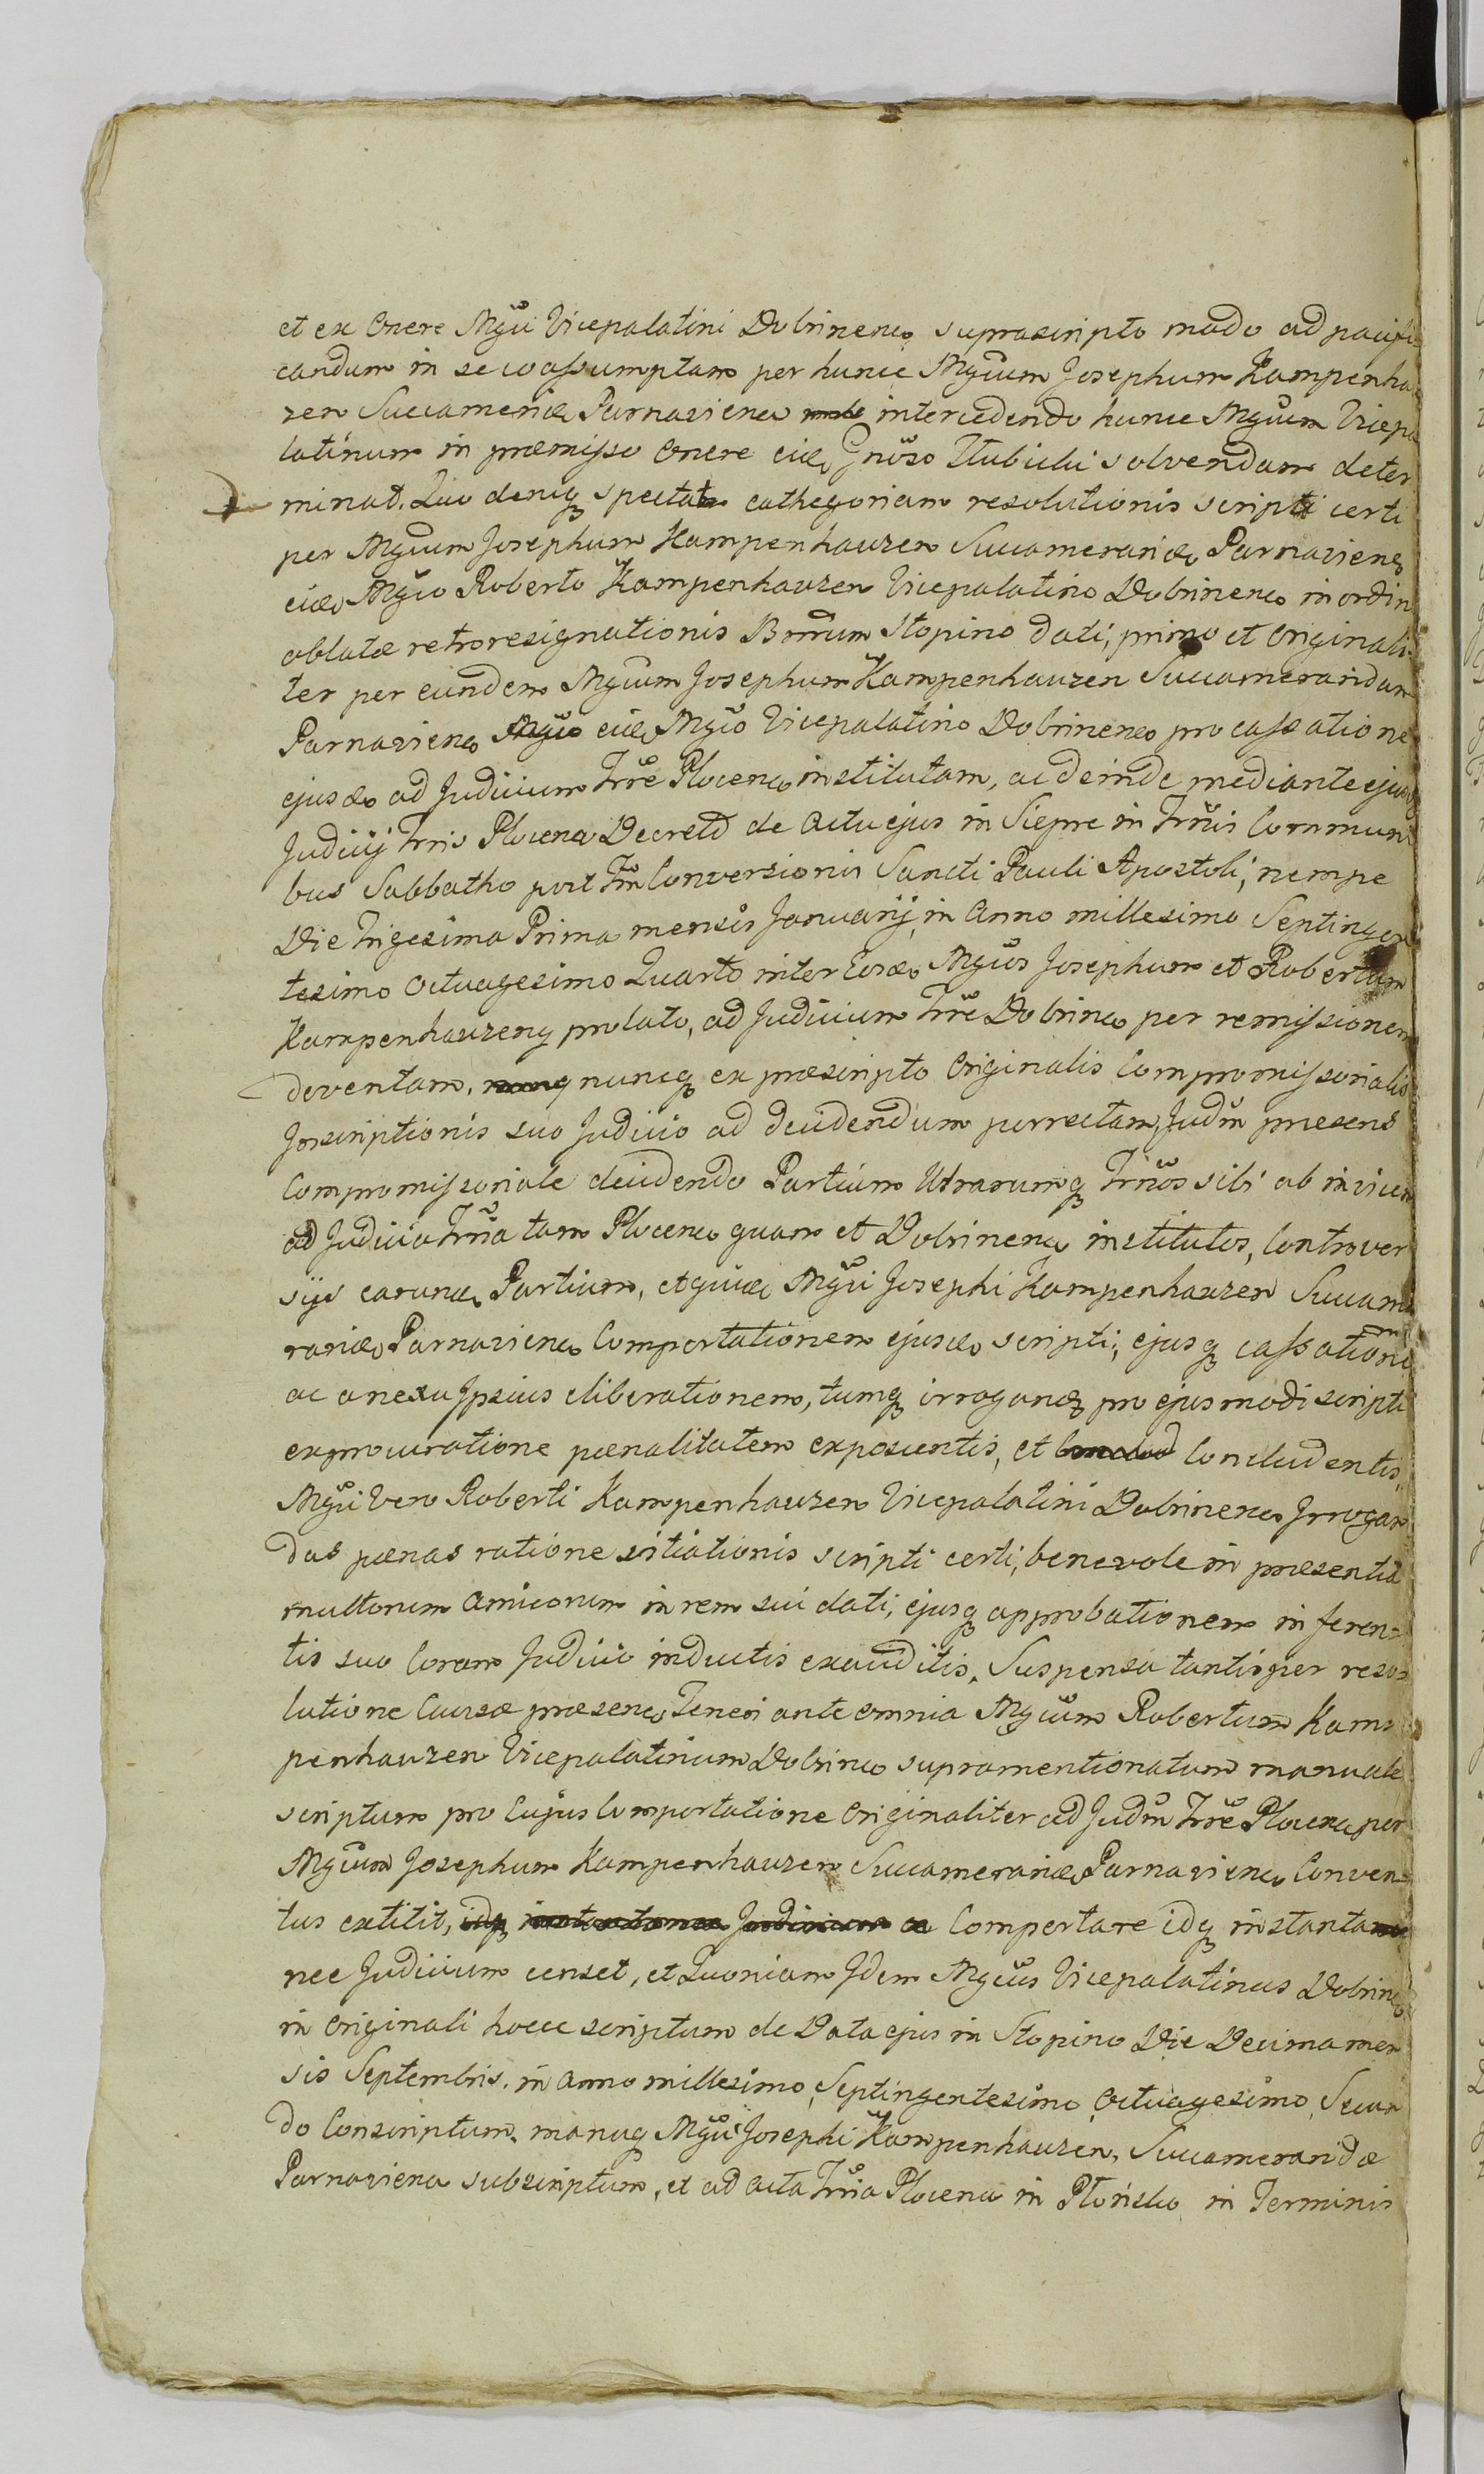 et ex Onere Mgci Vicepalatini Dobrinens suprascripto modo ad pacifi
candum in se coassumptam per hunce Mgcum Josephum Kampenha
zen Succamerid Parnaviens intercedendo hunce Mgcum Vicepa
latinum in præmisso Onere eid Gnoso Kubicki solvendam deter
minat. Quo deniq spectat cathegoriam resolutionis scripti certi
per Mgcum Josephum Kampenhauzen Succamerarid Parnaviens
eid Mgco Roberto Kampenhauzen Vicepalatino Dobrinens in ordin
oblatæ retroresignationis Bnrum Stopino dati, primo et Originali
ter per eundem Mgcum Josephum Kampenhauzen Succamerandam
Parnaviens Mgco eid Mgco Vicepalatino Dobrinens pro cassatione
ejusd ad Judicium Trre Plocens institutam, ac deinde mediante ejusd
Judicij Trris Plocens Decreto de Actu ejus in Sierpc in Trnis Commun
bus Sabbatho post Ftm Conversionis Sancti Pauli Apostoli, nempe
Die Trigesima Prima mensis Januarij, in Anno millesimo Septingen
tesimo Octuagesimo Quarto inter Eosd Mgcos Josephum et Robertum
Kampenhauzeny prolato, ad Judicium Trre Dobrins per remissionem
deventam, nuncq ex præscripto Originalis Compromissorialis
Inscriptionis suo Judicio ad decidendum porrectam, Judm præsens
Compromissoriale decidendo Partium Utrarumq Trnos sibi ab invicem
ad Judicia Trria tam Plocens quam et Dobrinens institutos, Controver
sijs earund Partium, et quid Mgci Josephi Kampenhauzen Succame
rarid Parnaviens Comportationem ejusd scripti, ejusq cassationem
ac a nexu Ipsius eliberationem, tumq irrogand pro ejusmodi scripti
exprocuratione pænalitatem exposcentis, et Concludentis,
Mgci vero Roberti Kampenhauzen Vicepalatini Dobrinens Irrogan
das pænas ratione vitiationis scripti certi, benevole in præsentia
multorum Amicorum in rem sui dati, ejusq approbationem inferen=
tis suo Coram Judicio inductis exauditis, Suspensa tantisper reso=
lutione Causæ præsens, Teneri ante omnia Mgcum Robertum Kam=
penhauzen Vicepalatinum Dobrins supramentionatum manuale
scriptum pro Cujus Comportatione Originaliter ad Judm Trre Plocens per
Mgcum Josephum Kampenhauzen Succamerarid Parnaviens Conven=
tus extitit, Comportare idq instanta
nee Judicium censet, et Quoniam Idem Mgcus Vicepalatinus Dobrins
in Originali hocce scriptum de Data ejus in Stopino Die Decima men
sis Septembris, in Anno millesimo Septingentesimo Octuagesimo Secun
do Conscriptum, manuq Mgci Josephi Kampenhauzen, Succamerandæ
Parnaviens subscriptum, et ad Acta Trria Plocens in Płońsko in Terminis